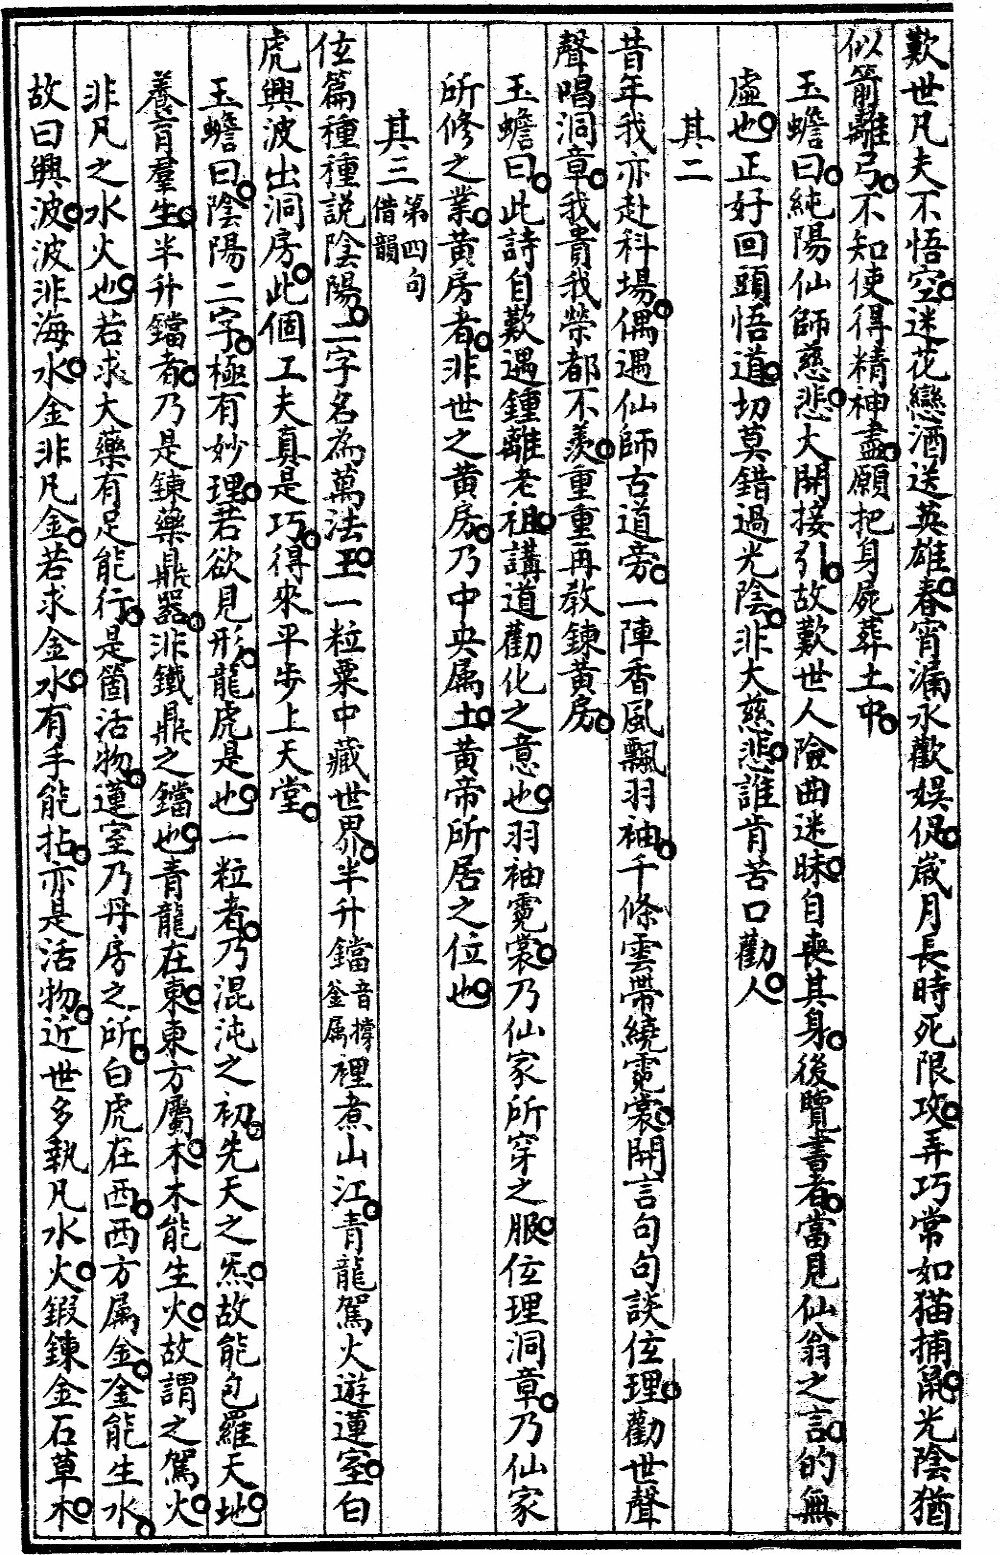 歎世凡夫不悟空迷花戀酒送英雄春宵漏永歡娛促歲月長時死限攻弄巧常如猫捕鼠光陰猶
似箭離弓不知使得精神盡願把身屍葬土中
玉蟾曰純陽仙師慈悲大開接引故歎世人險曲迷昧自喪其身後覽書者當見仙翁之言的無
虛也正好回頭悟道切莫錯過光陰非大慈悲誰肯苦口勸人
其二
昔年我亦赴科場偶遇仙師古道旁一陣香風飄羽袖千條雲帶繞霓裳開言句句談伭理勸世聲
聲唱洞章我貴我榮都不羨重重再教鍊黃房
玉蟾曰此詩自歎遇鍾離老祖講道勸化之意也羽袖霓裳乃仙家所穿之服伭理洞章乃仙家
所修之業黃房者非世之黃房乃中央属土黃帝所居之位也
其三第四句借韻
伭篇種種説陰陽二字名為萬法王一粒粟中藏世界半升鐺音撐釜属裡煮山江青龍駕火遊蓮室白
虎興波出洞房此個工夫真是巧得來平步上天堂
玉蟾曰陰陽二字極有妙理若欲見形龍虎是也一粒者乃混沌之初先天之炁故能包羅天地
養育羣生半升鐺者乃是鍊藥鼎器非鐵鼎之鐺也青龍在東東方屬木木能生火故謂之駕火
非凡之水火也若求大藥有足能行是箇活物蓮室乃丹房之所白虎在西西方属金金能生水
故曰興波波非海水金非凡金若求金水有手能拈亦是活物近世多執凡水火鍜鍊金石草木